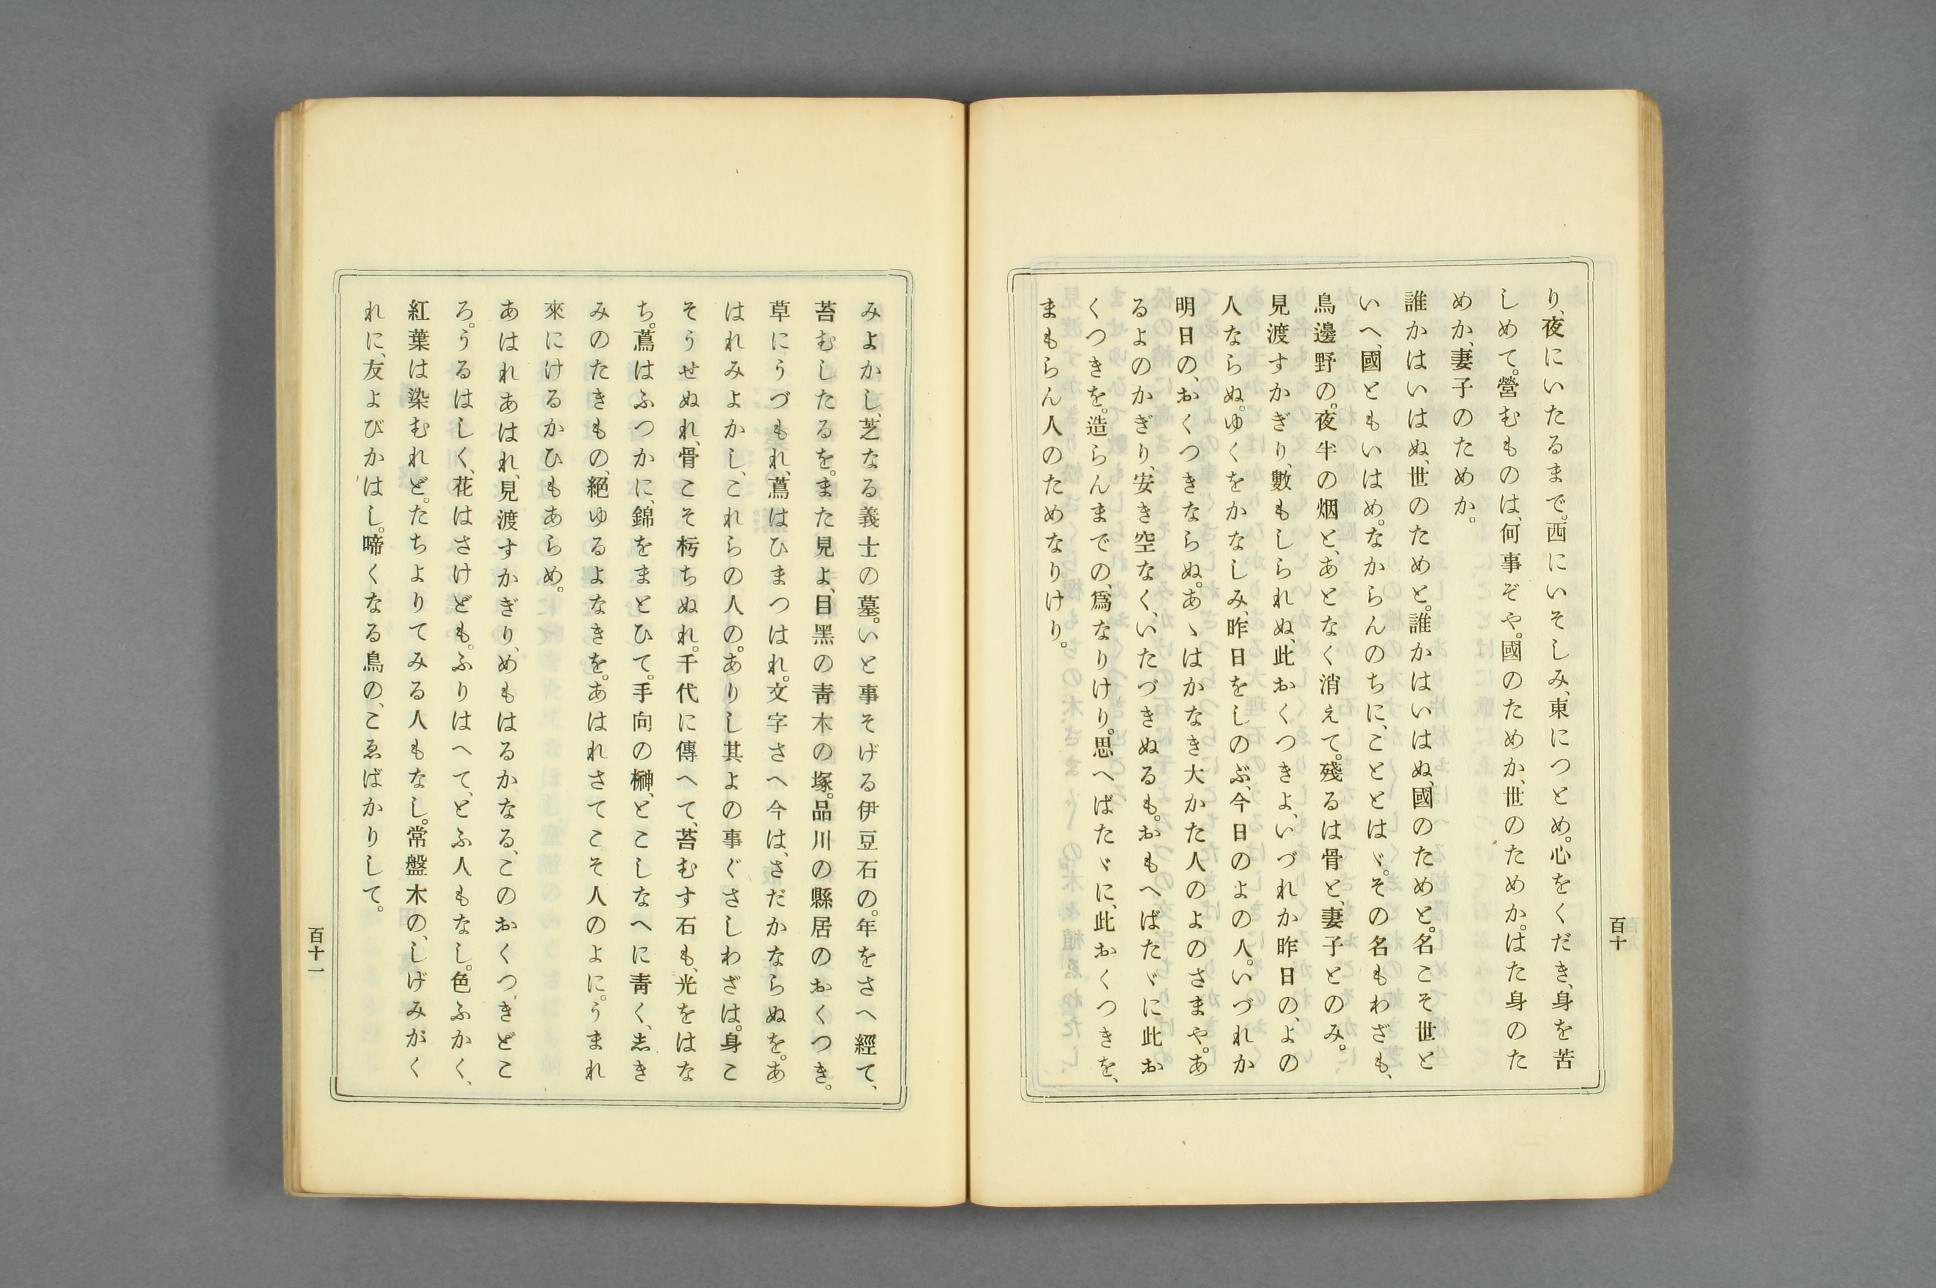 り、夜にいたるまで。西にいそしみ、東につとめ。心をくだき、身を苦
しめて。營むものは、何事ぞや。國のためか、世のためか。はた身のた
めか、妻子のためか。
誰かはいはぬ、世のためと。誰かはいはぬ、國のためと。名こそ世と
いへ、國ともいはめ。なからんのちに、こととはゞ。その名もわざも、
鳥邊野の。夜半の烟と、あとなく消えて。殘るは骨と、妻子とのみ。
見渡すかぎり、數もしられぬ、此おくつきよ、いづれか昨日の、よの
人ならぬ。ゆくをかなしみ、昨日をしのぶ、今日のよの人。いづれか
明日の、おくつきならぬ。あゝはかなき大かた人のよのさまや。あ
るよのかぎり、安き空なく、いたづきぬるも。おもへばたゞに此お
くつきを。造らんまでの、爲なりけり。思へばたゞに、此おくつきを、
まもらん人のためなりけり。
百十
みよかし、芝なる義士の墓。いと事そげる伊豆石の。年をさへ經て、
苔むしたるを。また見よ、目黑の靑木の塚。品川の縣居のおくつき。
草にうづもれ、蔦はひまつはれ。文字さへ今は、さだかならぬを。あ
はれみよかし、これらの人の。ありし其よの事ぐさしわざは。身こ
そうせぬれ、骨こそ朽ちぬれ。千代に傳へて、苔むす石も、光をはな
ち。蔦はふつかに、錦をまとひて。手向の榊、とこしなへに靑く、志き
みのたきもの、絕ゆるよなきを。あはれさてこそ人のよに。うまれ
來にけるかひもあらめ。
あはれあはれ、見渡すかぎり、めもはるかなる、このおくつきどこ
ろ。うるはしく、花はさけども。ふりはへて、とふ人もなし。色ふかく、
紅葉は染むれど。たちよりてみる人もなし。常盤木の、しげみがく
れに、友よびかはし。啼くなる鳥の、こゑばかりして。
百十一